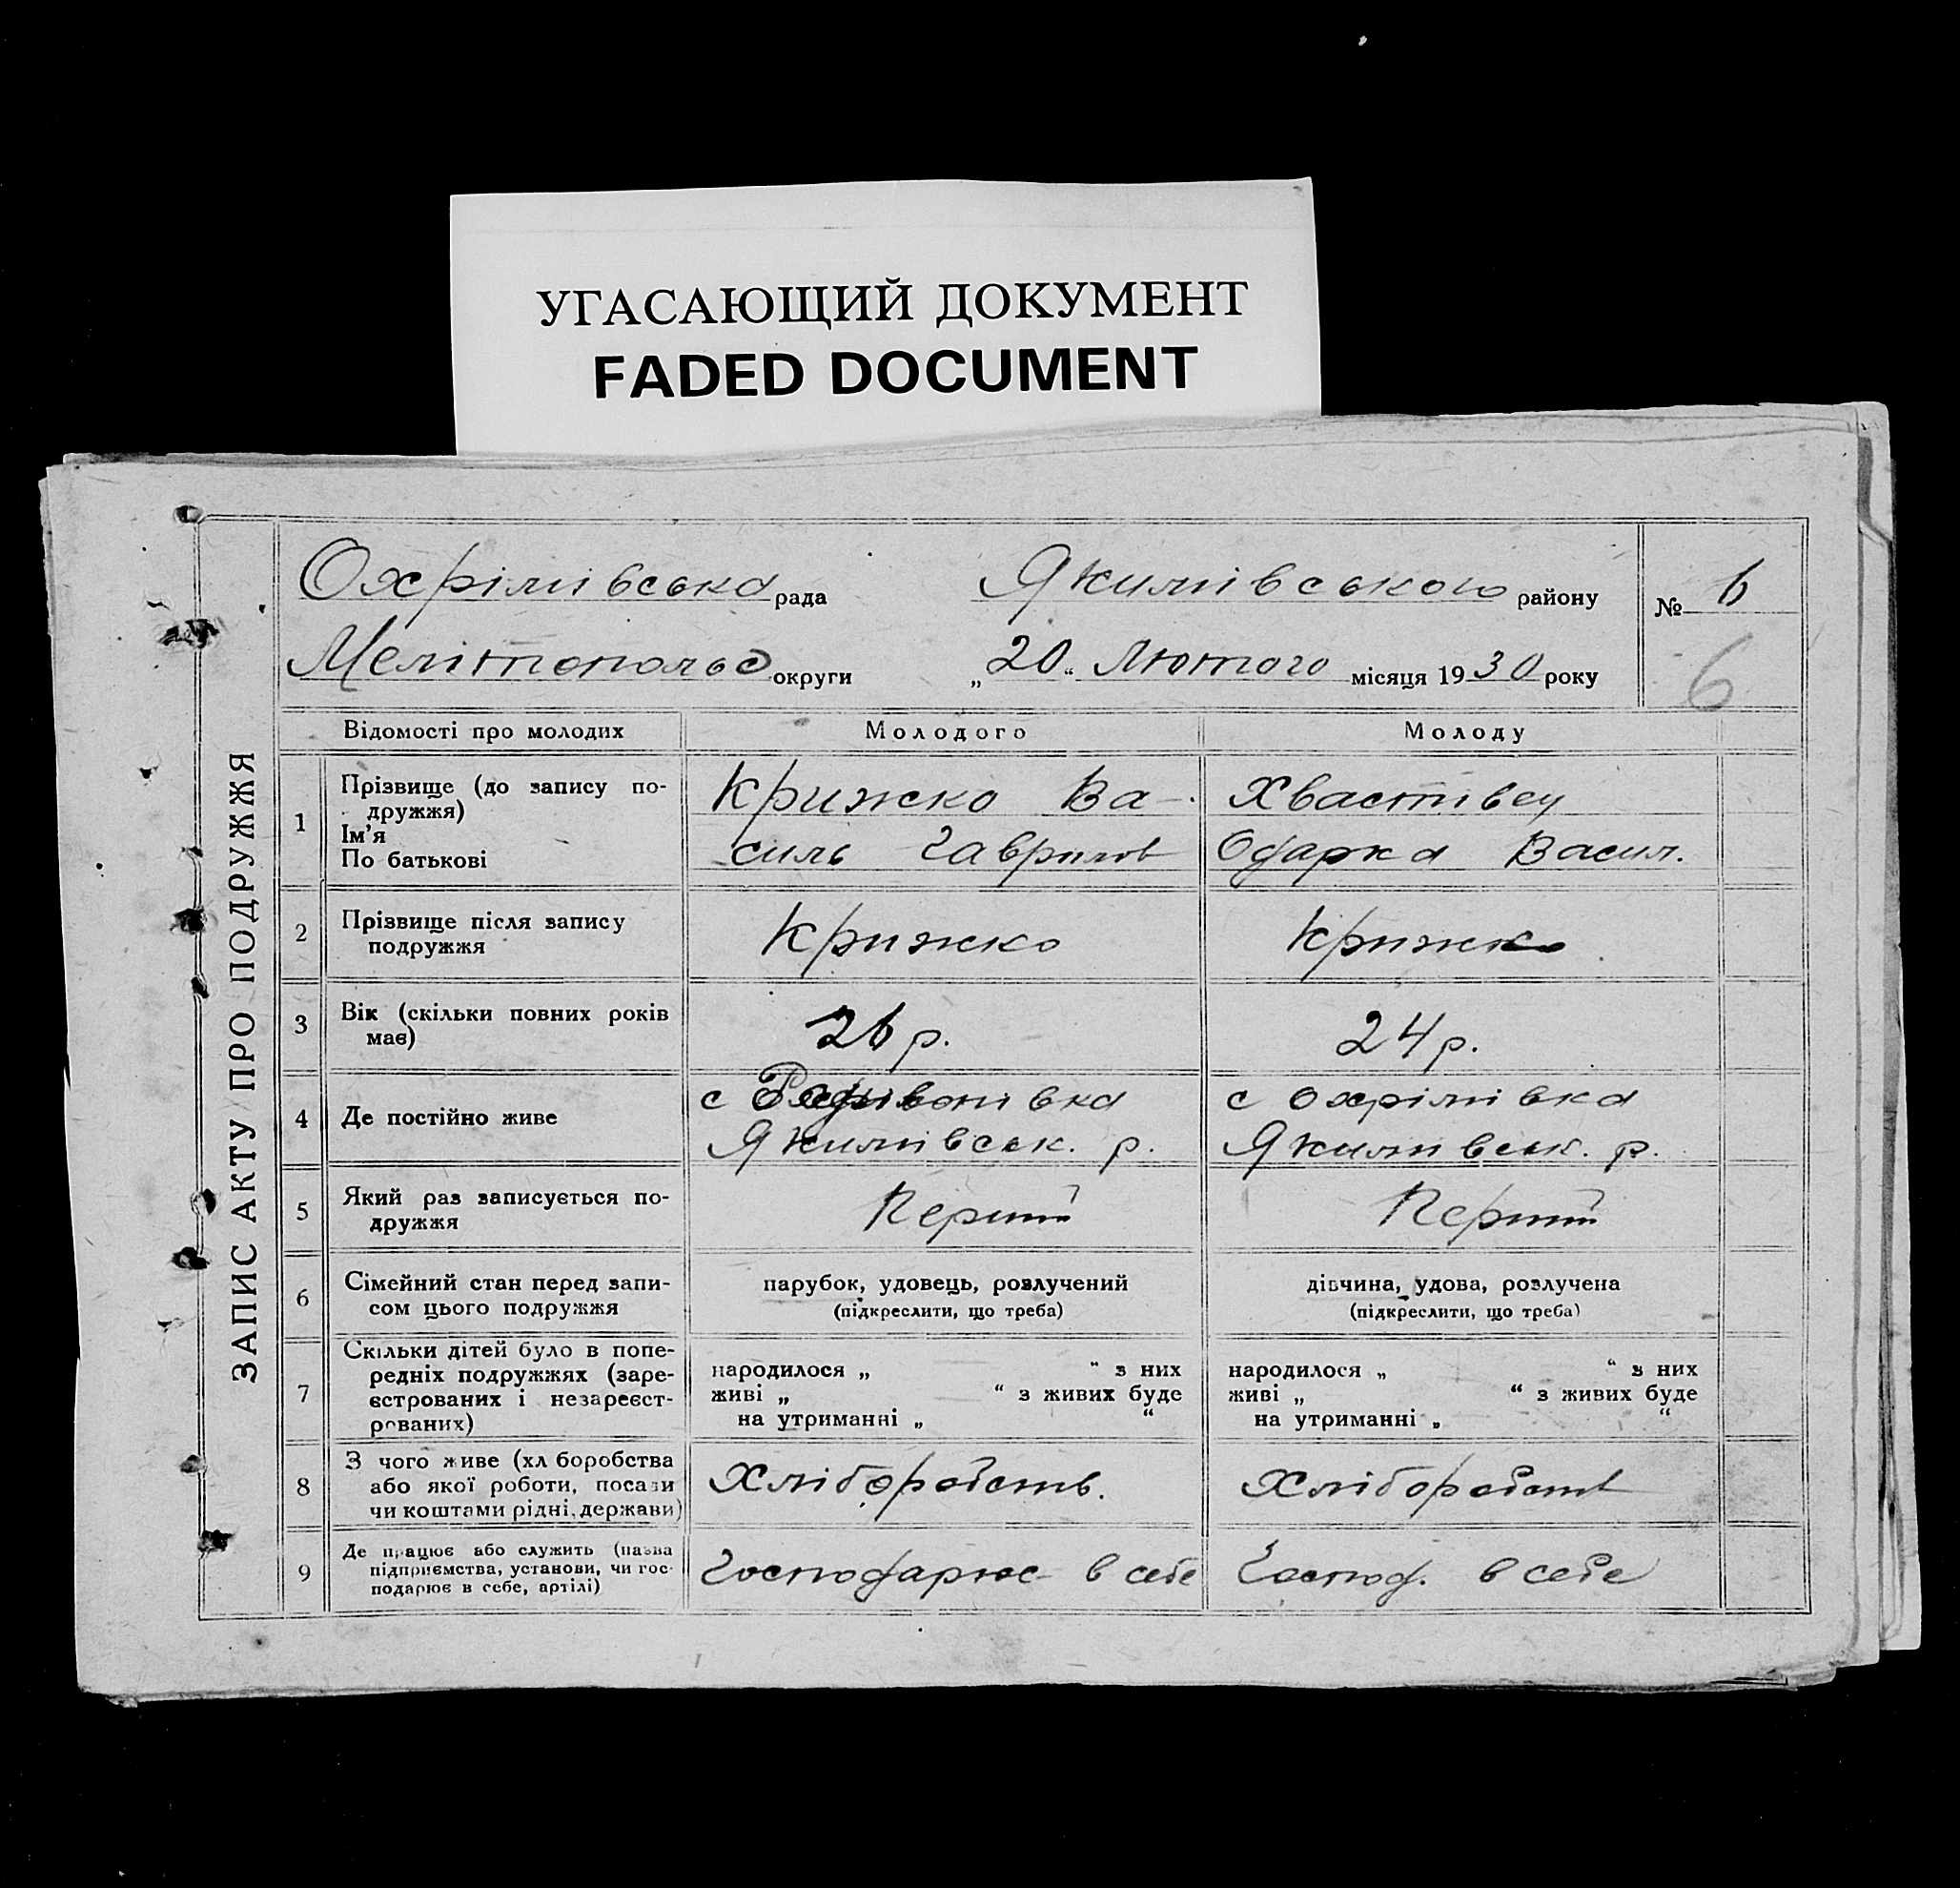 УГАСАЮЩИЙ ДОКУМЕНТ
FADED DOCUMENT
ЗАПИС АКТУ ПРО ПОДРУЖЖЯ
Охрімівська рада Якимівського району № 6
Мелітопольс округи „20“ Лютого місяця 1930 року 6
Відомості про молодих Молодого Молоду
1 Прізвище (до запису по-
дружжя)
Ім'я
По батькові
Крижко Ва-
силь Гаврилов
Хвастівец
Одарка Васил.
2 Прізвище після запису
подружжя
Крижко Крижко
3 Вік (скільки повних років
має)
26 р. 24 р.
4 Де постійно живе
с Радивонівка
Якимівськ. р.
с Охрімівка
Якимівськ. р.
5 Який раз записується по-
дружжя
Перший Перший
6 Сімейний стан перед запи-
сом цього подружжя
парубок, удовець, розлучений
(підкреслити, що треба)
дівчина, удова, розлучена
(підкреслити, що треба)
7 Скільки дітей було в попе-
редніх подружжях (заре-
єстрованих і незареєст-
рованих)
народилося „ “ з них
живі „ “ з живих буде
на утриманні „ “
народилося „ “ з них
живі „ “ з живих буде
на утриманні „ “
8 З чого живе (хліборобства
або якої роботи, посади
чи коштами рідні, держави)
Хліборобств. Хліборобств
9 Де працює або служить (назва
підприємства, установи, чи гос-
подарює в себе, артілі)
Господарює в себе Господ. в себе